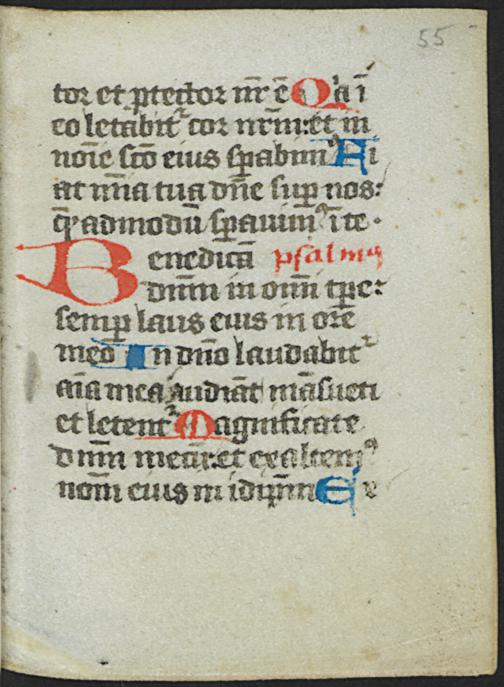 55
tor et ꝓtector nr̄ ē Qꝛ'a ī
eo letabit᷑ cor nr̄m: et in
noīe sc̄o eius sꝑabim᷒ Fi
at mīa tua dn̄e suꝑ nos:
q̄ꝫadmodū sꝑauim᷒ ī te.
Benedicā psalmus
dnm̄ in om̄i tꝑe:
semꝑ laus eius in ore
meo In dn̄o laudabit᷑
aīa mea audiāt māsueti
et letent᷑ Magnificate
dnm̄ mecū: et exaltem᷒
nom̄ eius in idip̄m Ex